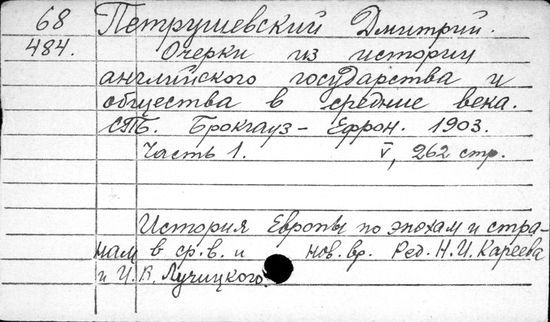 68 Петрушевский Дмитрий.
484. Очерки из истории
английского государства и
общества в средние века.
СПБ. Брокгауз-Ефрон. 1903.
Часть 1. V, 262 стр.
История Европы по эпохам и стра-
нам в ср. в. и нов. вр. Ред. Н.И. Кареева
и И.В. Лучицкого.